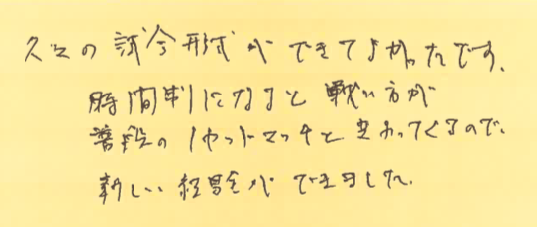 久々の試合形式ができてよかったです。
時間制になると戦い方が
普段の1セットマッチと変わってくるので、
新しい経験ができました。